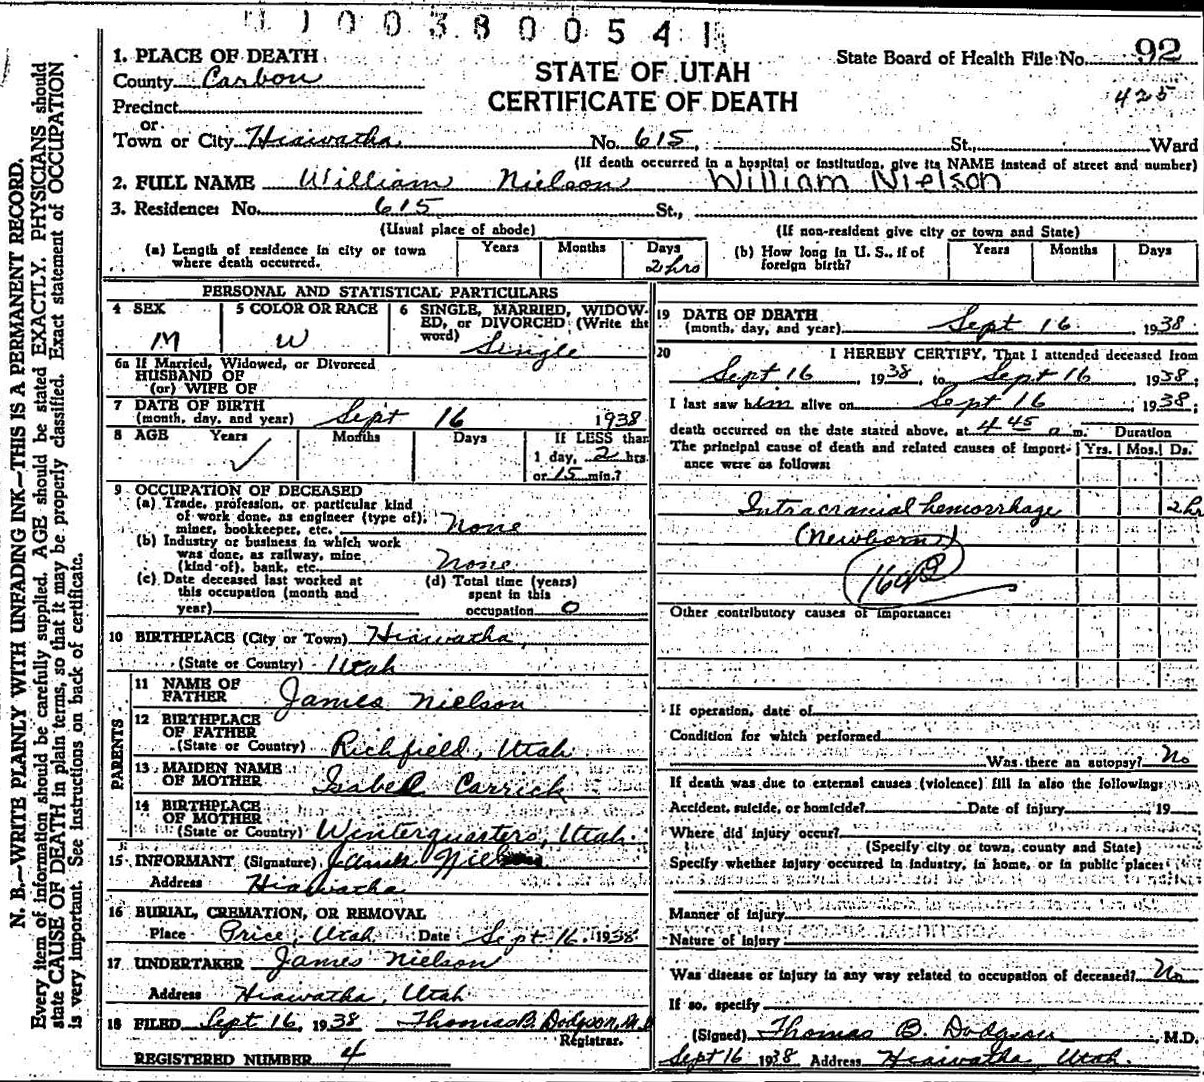 1 1 0 0 3 8 0 0 5 4 1
1. PLACE OF DEATH
County Carbon
Precinct
or
Town or City Hiawatha No. 615, St., Ward
STATE OF UTAH
CERTIFICATE OF DEATH
State Board of Health File No. 92
425
(If death occurred in a hospital or institution, give its NAME instead of street and number)
2. FULL NAME William Nielson William Nielson
3. Residence: No. 615 St.,
(Usual place of abode) (If non-resident give city or town and State)
(a) Length of residence in city or town where death occurred. Years Months Days 2 hrs
(b) How long in U. S., if of foreign birth? Years Months Days
PERSONAL AND STATISTICAL PARTICULARS
4 SEX M
5 COLOR OR RACE W
6 SINGLE, MARRIED, WIDOW-
ED, or DIVORCED (Write the
word) Single
6a If Married, Widowed, or Divorced
HUSBAND OF
(or) WIFE OF
7 DATE OF BIRTH
(month, day, and year) Sept 16 1938
8 AGE Years ✓ Months Days If LESS than
1 day, 2 hrs.
or 15 min.?
9 OCCUPATION OF DECEASED
(a) Trade, profession, or particular kind
of work done, as engineer (type of),
miner, bookkeeper, etc. None
(b) Industry or business in which work
was done, as railway, mine
(kind of), bank, etc. None
(c) Date deceased last worked at
this occupation (month and
year)
(d) Total time (years)
spent in this
occupation 0
10 BIRTHPLACE (City or Town) Hiawatha,
(State or Country) Utah
PARENTS
11 NAME OF
FATHER James Nielson
12 BIRTHPLACE
OF FATHER
(State or Country) Richfield, Utah
13 MAIDEN NAME
OF MOTHER Isabel Carrick
14 BIRTHPLACE
OF MOTHER
(State or Country) Winterquarters, Utah.
15 INFORMANT (Signature)
Address Hiawatha
16 BURIAL, CREMATION, OR REMOVAL
Place Price, Utah Date Sept. 16. 1938
17 UNDERTAKER James Nielson
Address Hiawatha, Utah
18 FILED Sept 16, 1938 Thomas B. Dodgson, M.D
Registrar.
REGISTERED NUMBER 4
19 DATE OF DEATH
(month, day, and year) Sept 16, 1938
20 I HEREBY CERTIFY, That I attended deceased from
Sept 16, 1938, to Sept 16, 1938;
I last saw him alive on Sept 16, 1938;
death occurred on the date stated above, at 4 45 a m. Duration
The principal cause of death and related causes of import-
ance were as follows: Yrs. Mos. Ds.
Intracranial hemorrhage 2 hr
(Newborn)
Other contributory causes of importance:
If operation, date of
Condition for which performed
Was there an autopsy? No
If death was due to external causes (violence) fill in also the following:
Accident, suicide, or homicide? Date of injury 19
Where did injury occur?
(Specify city or town, county and State)
Specify whether injury occurred in industry, in home, or in public place:
Manner of injury
Nature of injury
Was disease or injury in any way related to occupation of deceased? No
If so, specify
(Signed) Thomas B. Dodgson, M.D.
Sept 16 1938 Address Hiawatha, Utah.
N. B.—WRITE PLAINLY WITH UNFADING INK—THIS IS A PERMANENT RECORD.
Every item of information should be carefully supplied. AGE should be stated EXACTLY. PHYSICIANS should
state CAUSE OF DEATH in plain terms, so that it may be properly classified. Exact statement of OCCUPATION
is very important. See instructions on back of certificate.